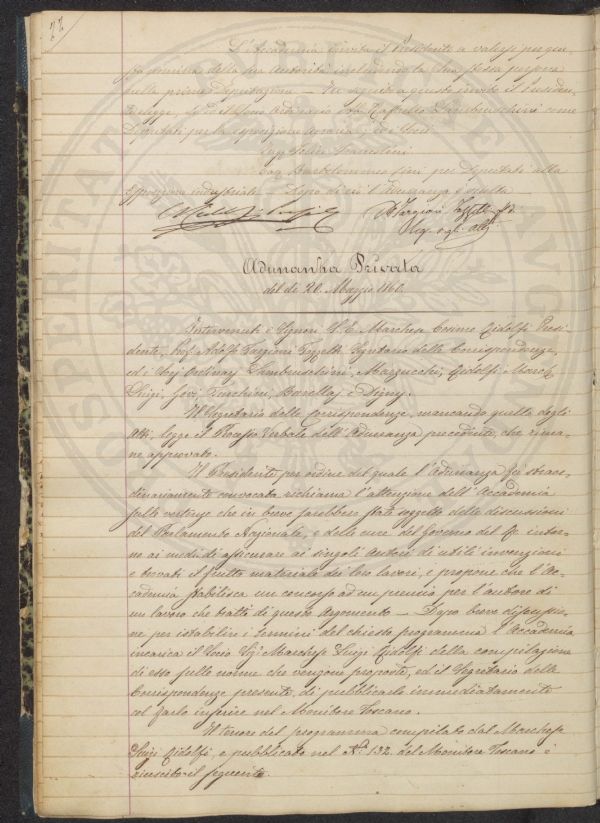 22
L'Accademia invita il Presidente a valersi per que-
sta nomina della sua autorità includendo la sua stessa persona
nella prima Deputazione — In seguito a questo invito il Presiden-
te elegge, il Socio Ordinario Raffaello Lambruschini come
Deputati per la esposizione agraria; e i Socj
Ing. Felice Francolini
Cav. Bartolommeo Cini per Deputati alla
Esposizione industriale — Dopo di ciò l'Adunanza è sciolta
A. Targioni Tozzetti
Seg. degli Atti
Adunanza Privata
del dì 20. Maggio 1860.
Intervenuti i Signori S. E. Marchese Cosimo Ridolfi Presi-
dente, Prof. Adolfo Targioni Tozzetti Segretario delle Corrispondenze,
ed i Socj Ordinarj Lambruschini, Marzucchi, Ridolfi March.
Luigi, Govi, Turchini, Barellaj e Dìny.
Il Segretario delle Corrispondenze, mancando quello degli
Atti, legge il Processo Verbale dell'Adunanza precedente, che rima-
ne approvato.
Il Presidente per ordine del quale l'Adunanza fu straor-
dinariamente convocata richiama l'attenzione dell'Accademia
sulle vertenze che in breve sarebbero state soggetto delle discussioni
del Parlamento Nazionale, e delle cure del Governo del Re intor-
no ai modi di assicurare ai singoli Autori di utili invenzioni
e trovati il frutto materiale dei loro lavori, e propone che l'Ac-
cademia stabilisca un concorso ad un premio per l'autore di
un lavoro che tratti di questo Argomento — Dopo breve discussio-
ne per istabilire i termini del chiesto programma l'Accademia
incarica il Socio Sig. Marchese Luigi Ridolfi della compilazione
di esso sulle norme che vengono proposte, ed il Segretario delle
Corrispondenze presente, di pubblicarlo immediatamente
col farlo inserire nel Monitore Toscano.
Il tenore del programma compilato dal Marchese
Luigi Ridolfi, e pubblicato nel N.º 132 del Monitore Toscano è
riuscito il seguente.